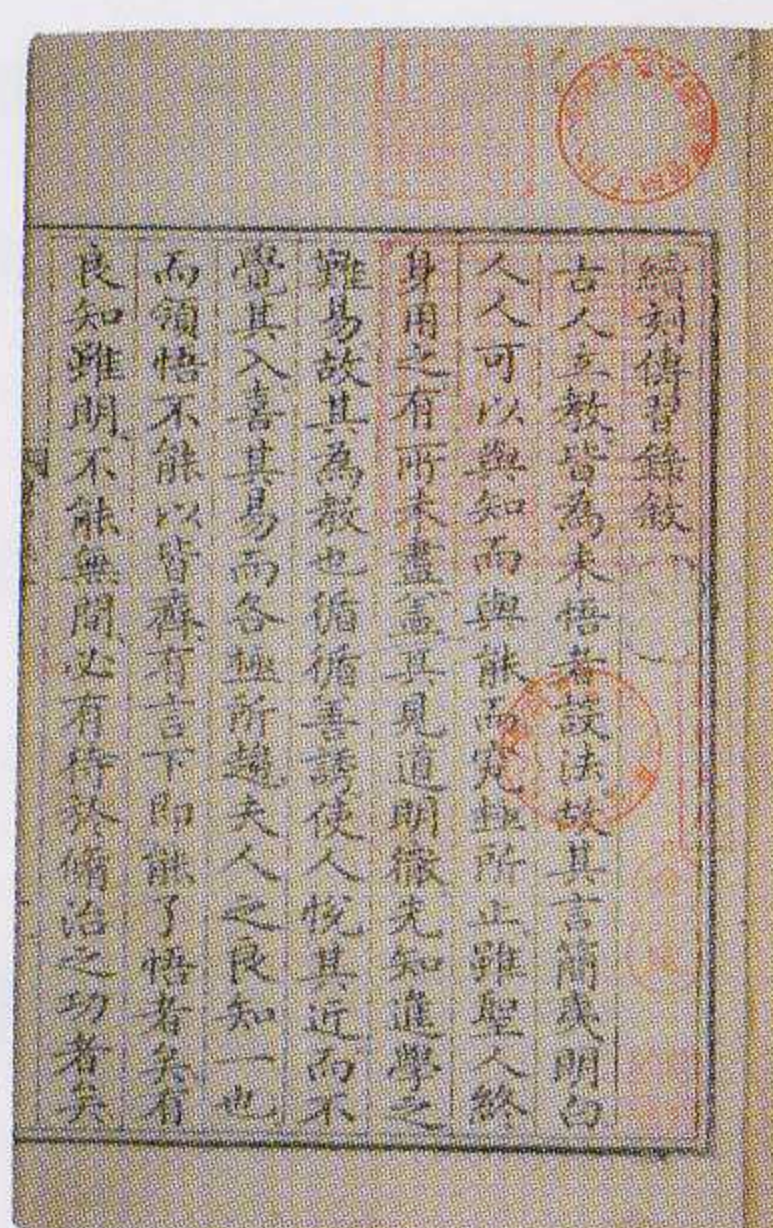 續刻傳習錄敘
古人立教皆為未悟者設法故其言簡易明白
人人可以與知而與能而究極所止雖聖人終
身用之有所未盡蓋其見道明徹先知進學之
難易故其為教也循循善誘使人悅其近而不
覺其入喜其易而各極所趨夫人之良知一也
而領悟不能以皆齊有言下即能了悟者矣有
良知雖明不能無間必有待於脩治之功者矣